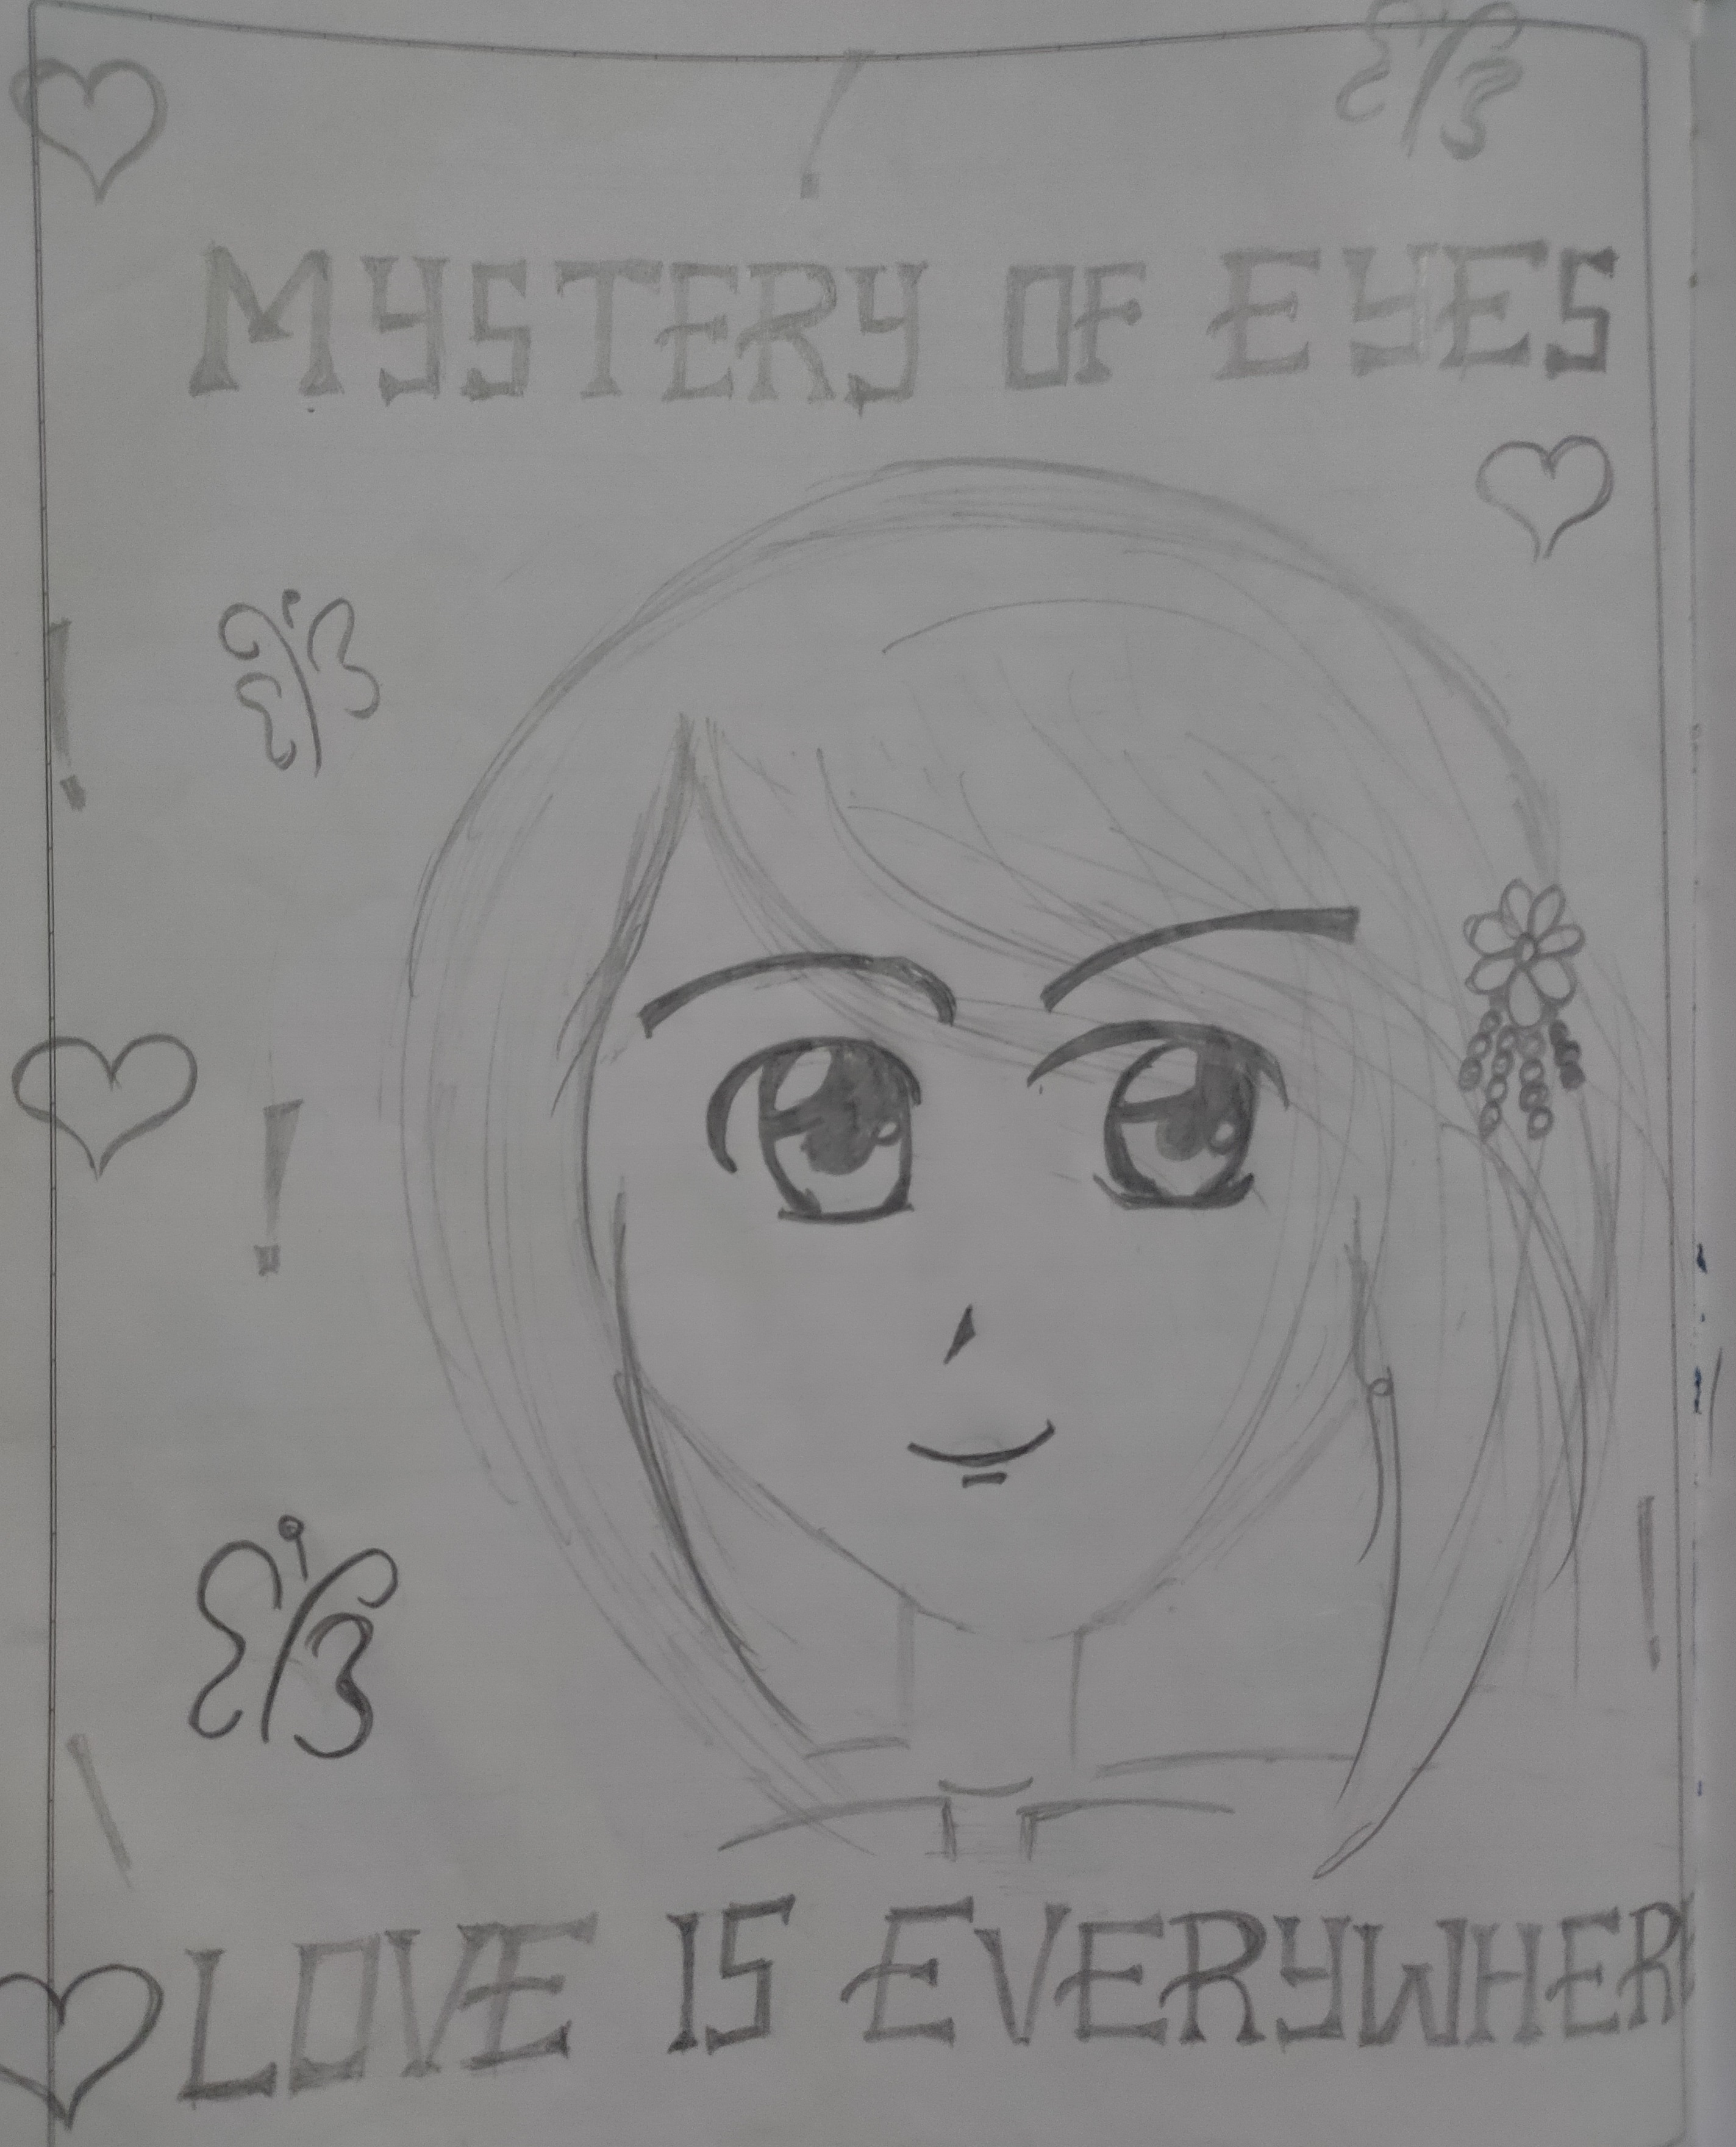 MYSTERY OF EYES
LOVE IS EVERYWHER